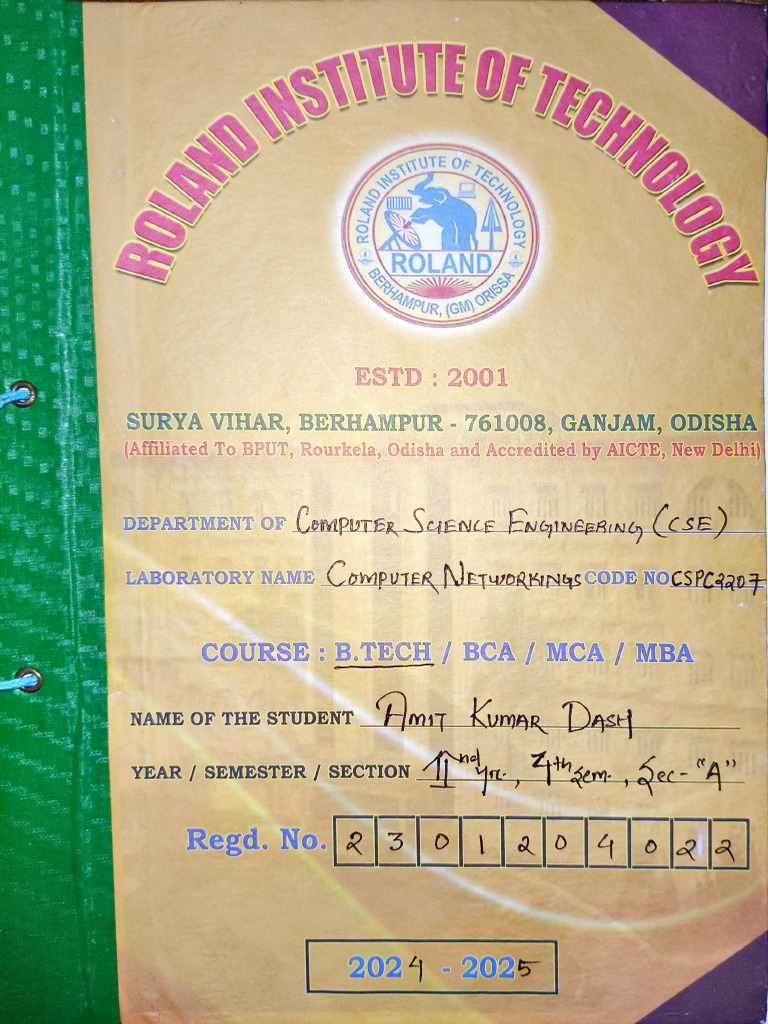 ROLAND INSTITUTE OF TECHNOLOGY
ROLAND INSTITUTE OF TECHNOLOGY
ROLAND
BERHAMPUR, (GM) ORISSA
ESTD : 2001
SURYA VIHAR, BERHAMPUR - 761008, GANJAM, ODISHA
(Affiliated To BPUT, Rourkela, Odisha and Accredited by AICTE, New Delhi)
DEPARTMENT OF COMPUTER SCIENCE ENGINEERING (CSE)
LABORATORY NAME COMPUTER NETWORKINGS CODE NO CSPC2207
COURSE : B.TECH / BCA / MCA / MBA
NAME OF THE STUDENT AMIT KUMAR DASH
YEAR / SEMESTER / SECTION IInd yr., 4th sem., Sec- "A"
Regd. No. 2301204022
2024 - 2025